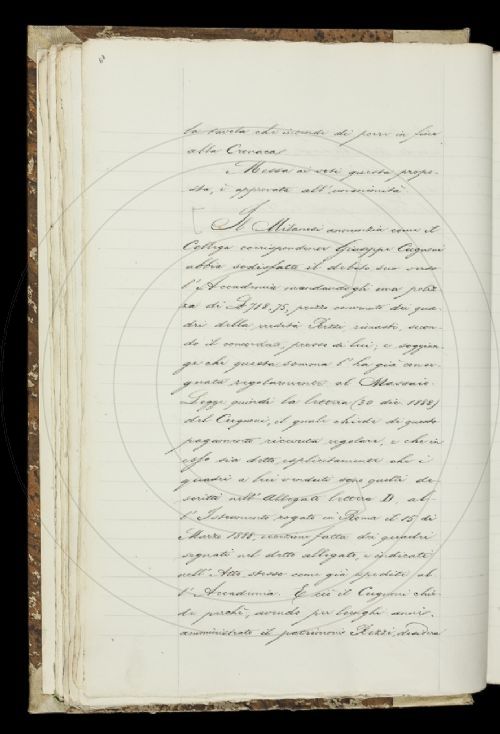 la tavola che intende di porre in fine
alla Cronaca.
Messa ai voti questa propo-
sta, è approvata all'unanimità
Il Milanesi annunzia come il
Collega corrispondente Giuseppe Cugnoni
abbia sodisfatto il debito suo verso
l'Accademia mandandogli una poliz
za di £ 788,75, prezzo convenuto dei qua-
dri della eredità Rezzi, rimasti, secon-
do il concordato, presso di lui; e soggiun-
ge che questa somma l'ha già conse-
gnata regolarmente al Massaio.
Legge quindi la lettera (30 dic. 1888)
del Cugnoni, il quale chiede di questo
pagamento ricevuta regolare, e che in
essa sia detto esplicitamente che i
quadri a lui venduti sono quelli de-
scritti nell'Allegato lettera D al-
l'Istrumento rogato in Roma il 15 di
Marzo 1888, eccezione fatta dei quadri
segnati nel detto allegato, e indicati
nell'Atto stesso come già spediti al-
l'Accademia. E ciò il Cugnoni chie-
de perchè, avendo per lunghi anni
amministrato il patrimonio Rezzi, desidera